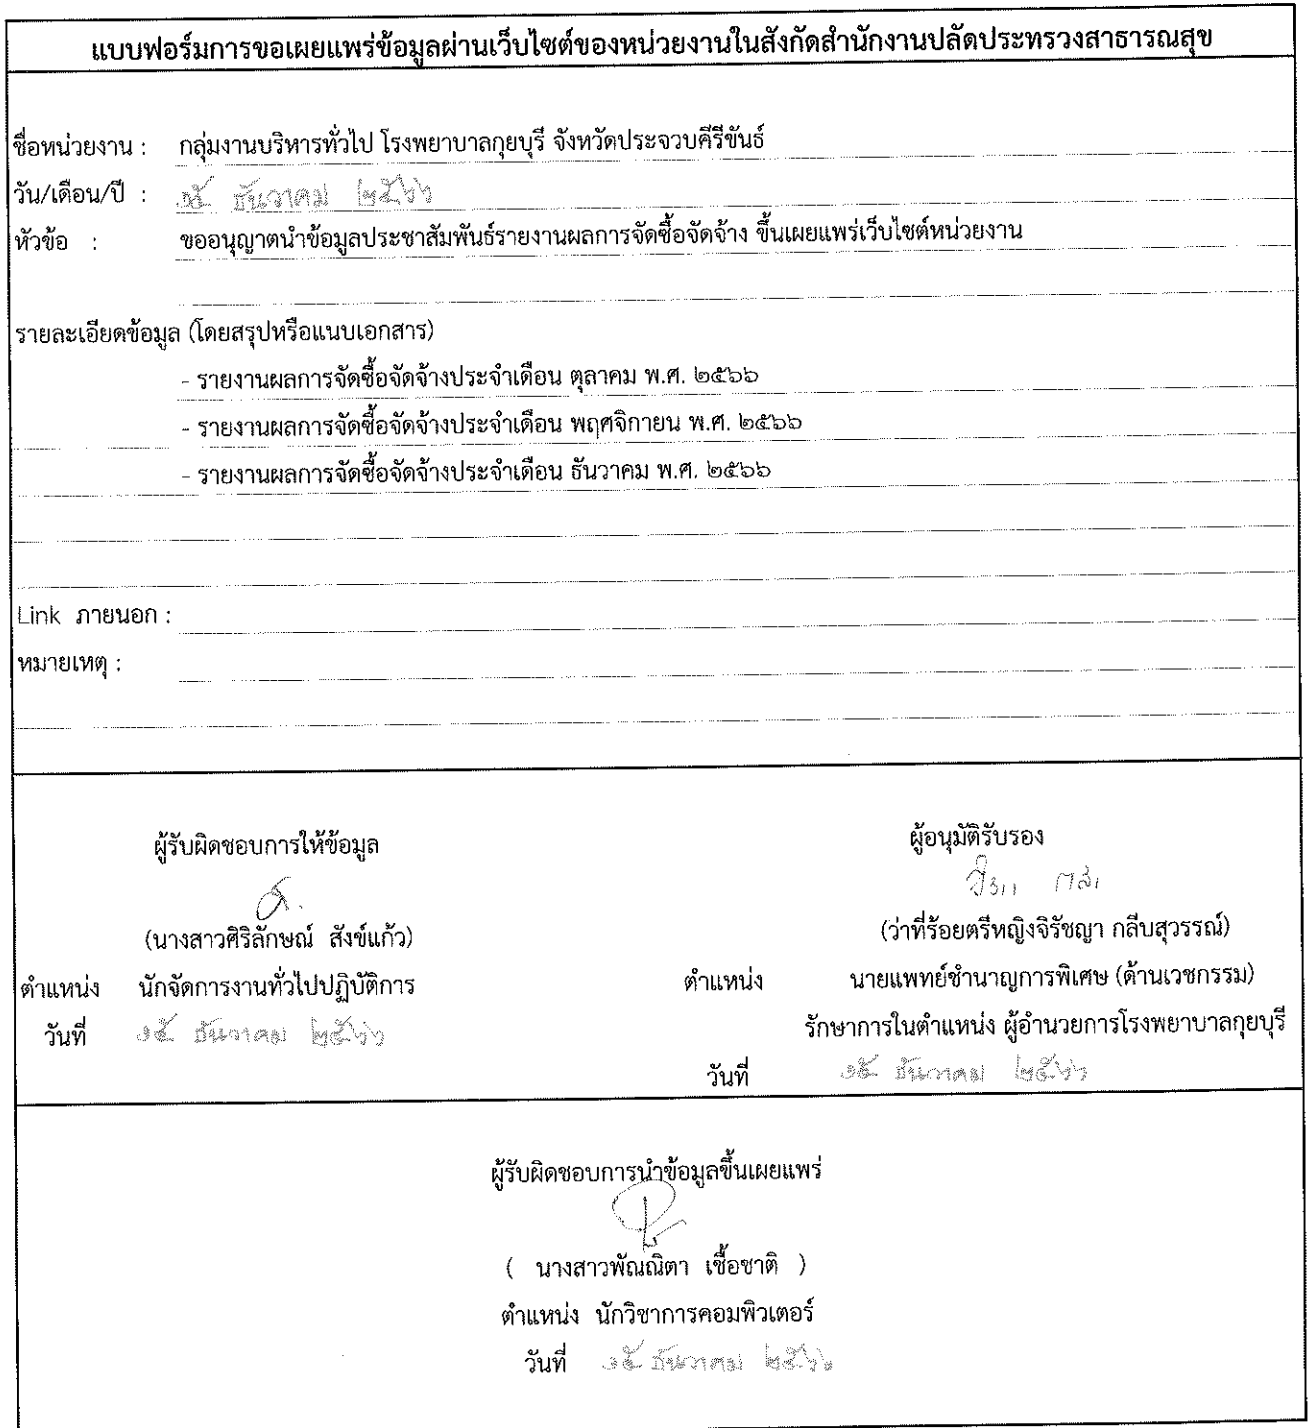 แบบฟอร์มการขอเผยแพร่ข้อมูลผ่านเว็บไซต์ของหน่วยงานในสังกัดสำนักงานปลัดประทรวงสาธารณสุข
ชื่อหน่วยงาน : กลุ่มงานบริหารทั่วไป โรงพยาบาลกุยบุรี จังหวัดประจวบคีรีขันธ์
วัน/เดือน/ปี : ๑๕ ธันวาคม ๒๕๖๖
หัวข้อ : ขออนุญาตนำข้อมูลประชาสัมพันธ์รายงานผลการจัดซื้อจัดจ้าง ขึ้นเผยแพร่เว็บไซต์หน่วยงาน
รายละเอียดข้อมูล (โดยสรุปหรือแนบเอกสาร)
- รายงานผลการจัดซื้อจัดจ้างประจำเดือน ตุลาคม พ.ศ. ๒๕๖๖
- รายงานผลการจัดซื้อจัดจ้างประจำเดือน พฤศจิกายน พ.ศ. ๒๕๖๖
- รายงานผลการจัดซื้อจัดจ้างประจำเดือน ธันวาคม พ.ศ. ๒๕๖๖
Link ภายนอก :
หมายเหตุ :
ผู้รับผิดชอบการให้ข้อมูล
(นางสาวศิริลักษณ์ สังข์แก้ว)
ตำแหน่ง นักจัดการงานทั่วไปปฏิบัติการ
วันที่ ๑๕ ธันวาคม ๒๕๖๖
ผู้อนุมัติรับรอง
(ว่าที่ร้อยตรีหญิงจิรัชญา กลีบสุวรรณ์)
ตำแหน่ง นายแพทย์ชำนาญการพิเศษ (ด้านเวชกรรม)
รักษาการในตำแหน่ง ผู้อำนวยการโรงพยาบาลกุยบุรี
วันที่ ๑๕ ธันวาคม ๒๕๖๖
ผู้รับผิดชอบการนำข้อมูลขึ้นเผยแพร่
( นางสาวพัณณิตา เชื้อชาติ )
ตำแหน่ง นักวิชาการคอมพิวเตอร์
วันที่ ๑๕ ธันวาคม ๒๕๖๖